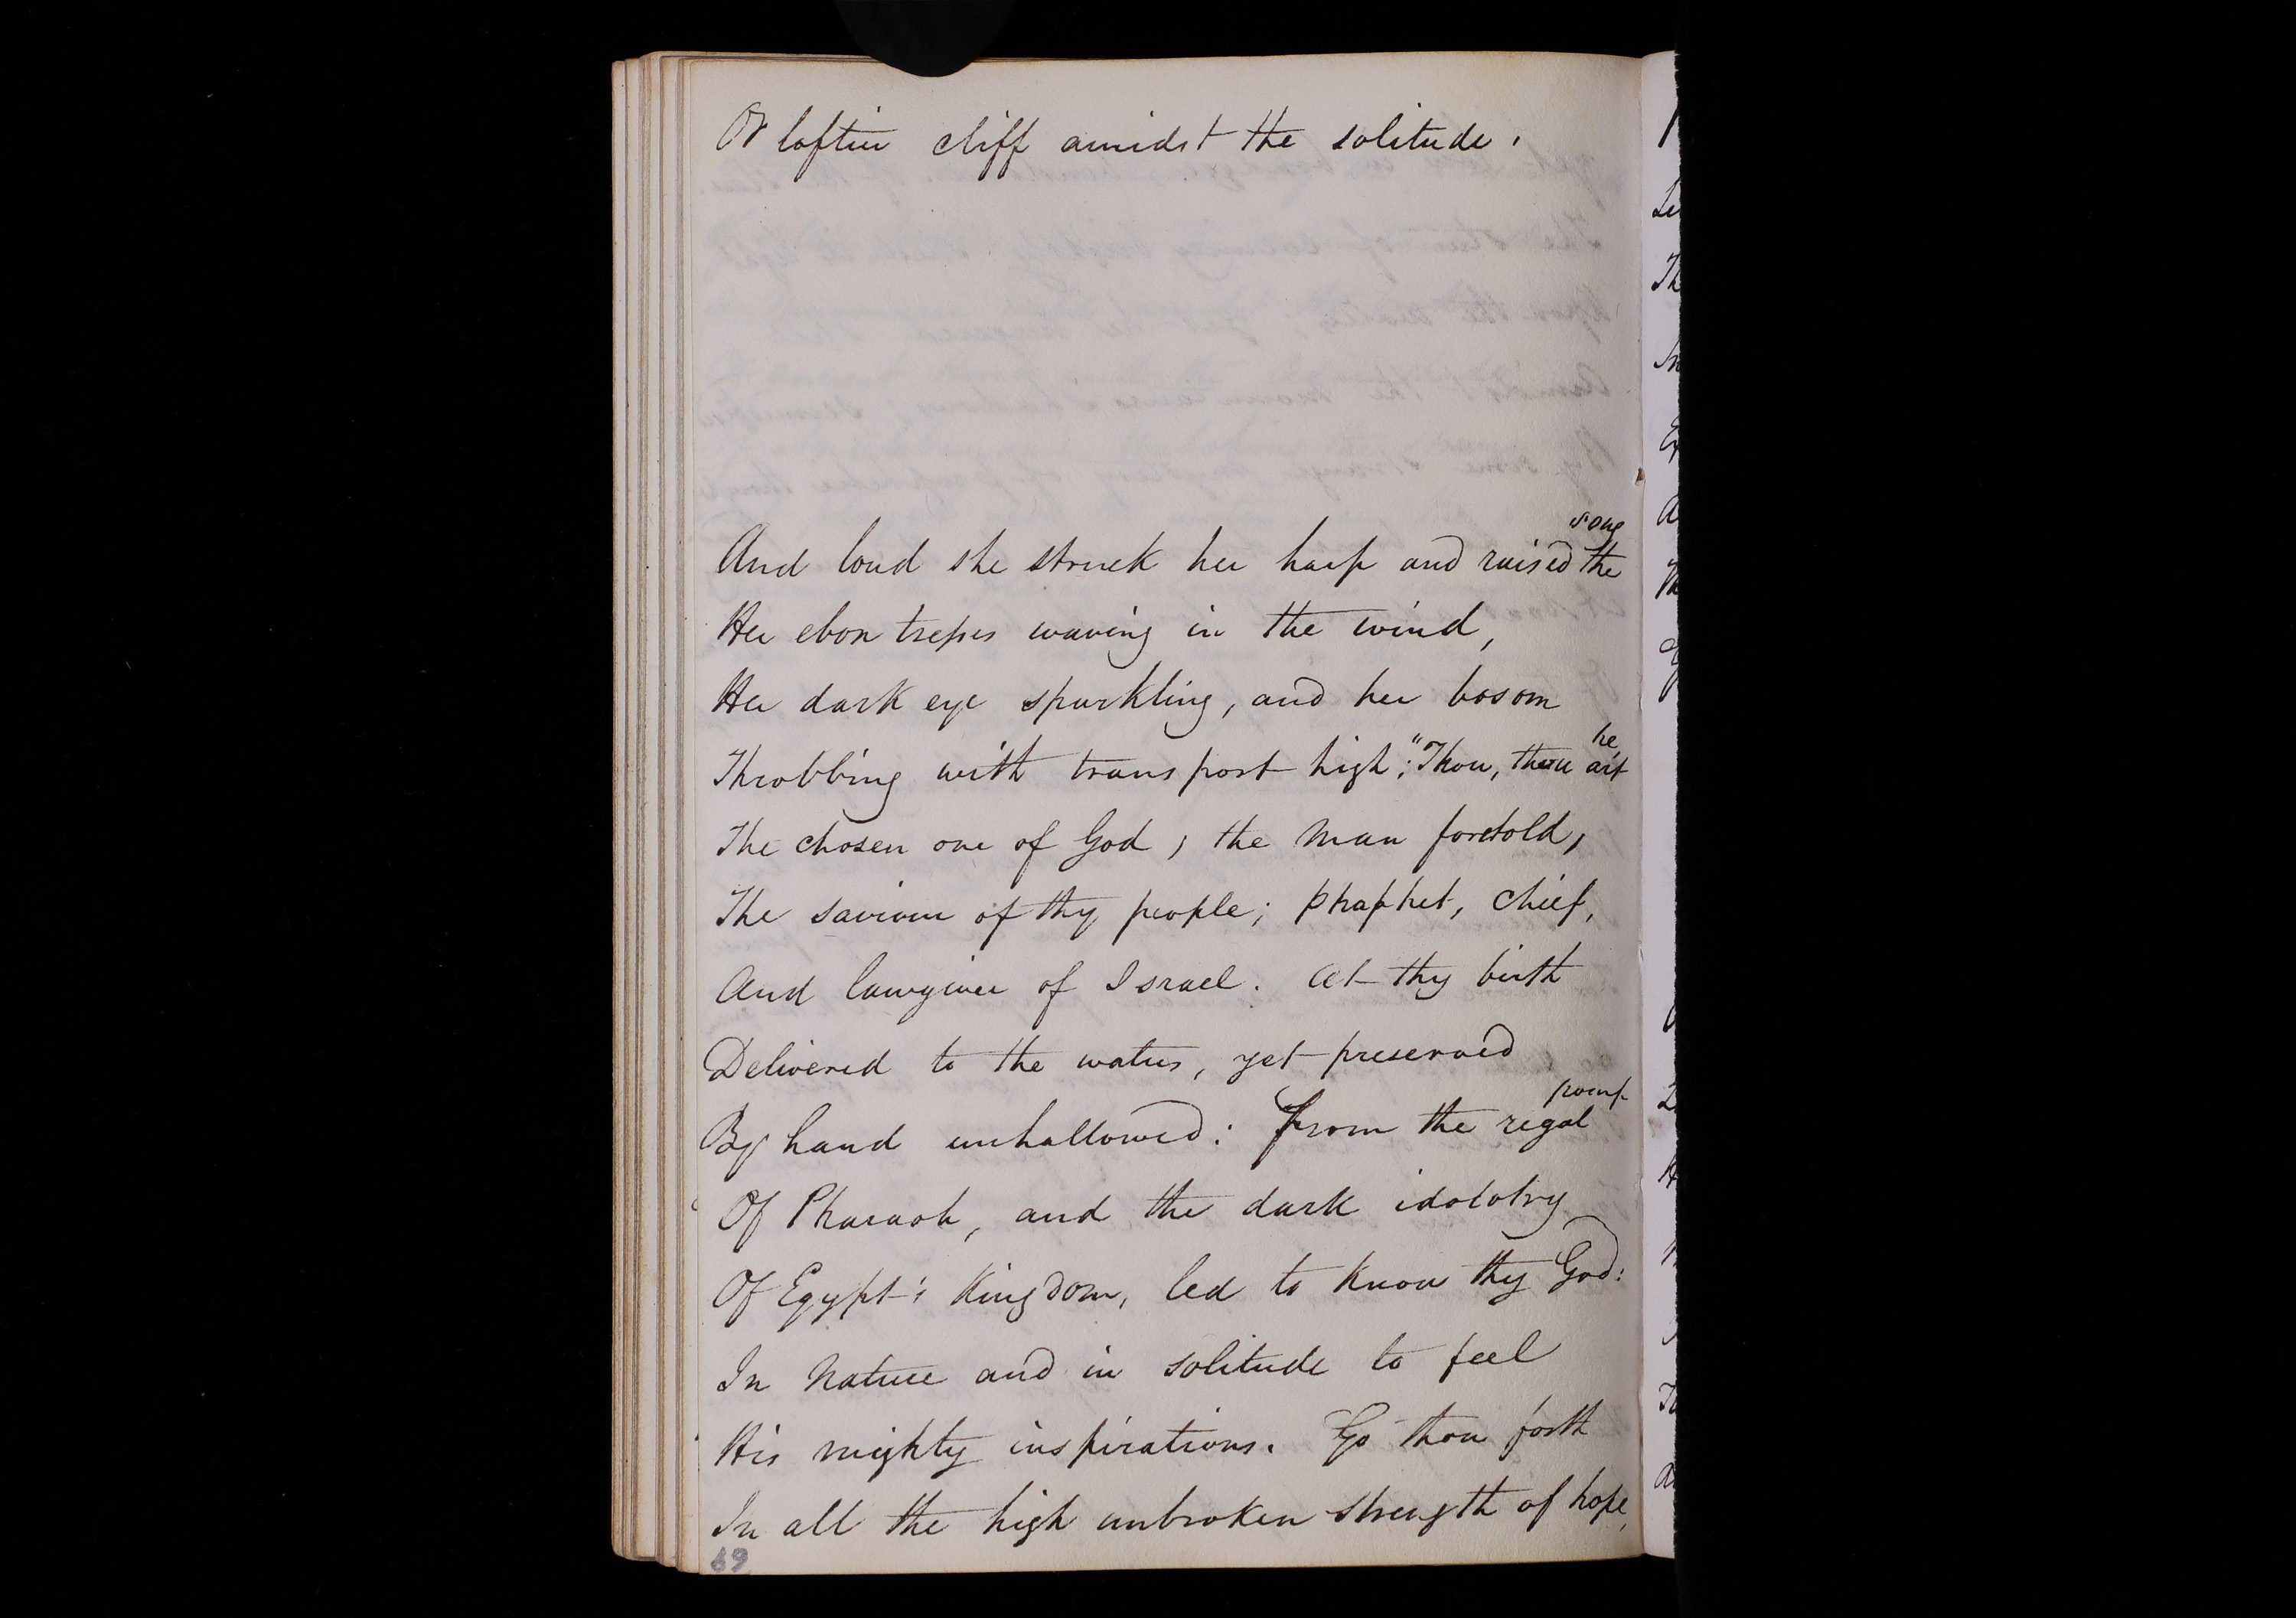 Or loftier cliff amidst the solitude.
And loud she struck her harp and raised the song
Her ebon tresses waving in the wind,
Her dark eye sparkling, and her bosom
Throbbing with transport high; "Thou, thou art he,
The chosen one of God, the man foretold,
The saviour of thy people; prophet, chief,
And lawgiver of Israel. At thy birth
Delivered to the waters, yet preserved
By hand unhallowed: from the regal pomp
Of Pharaoh, and the dark idolotry
Of Egypt's Kingdom, led to know thy God:
In Nature and in solitude to feel
His mighty inspirations. Go thou forth
In all the high unbroken strength of hope,
69